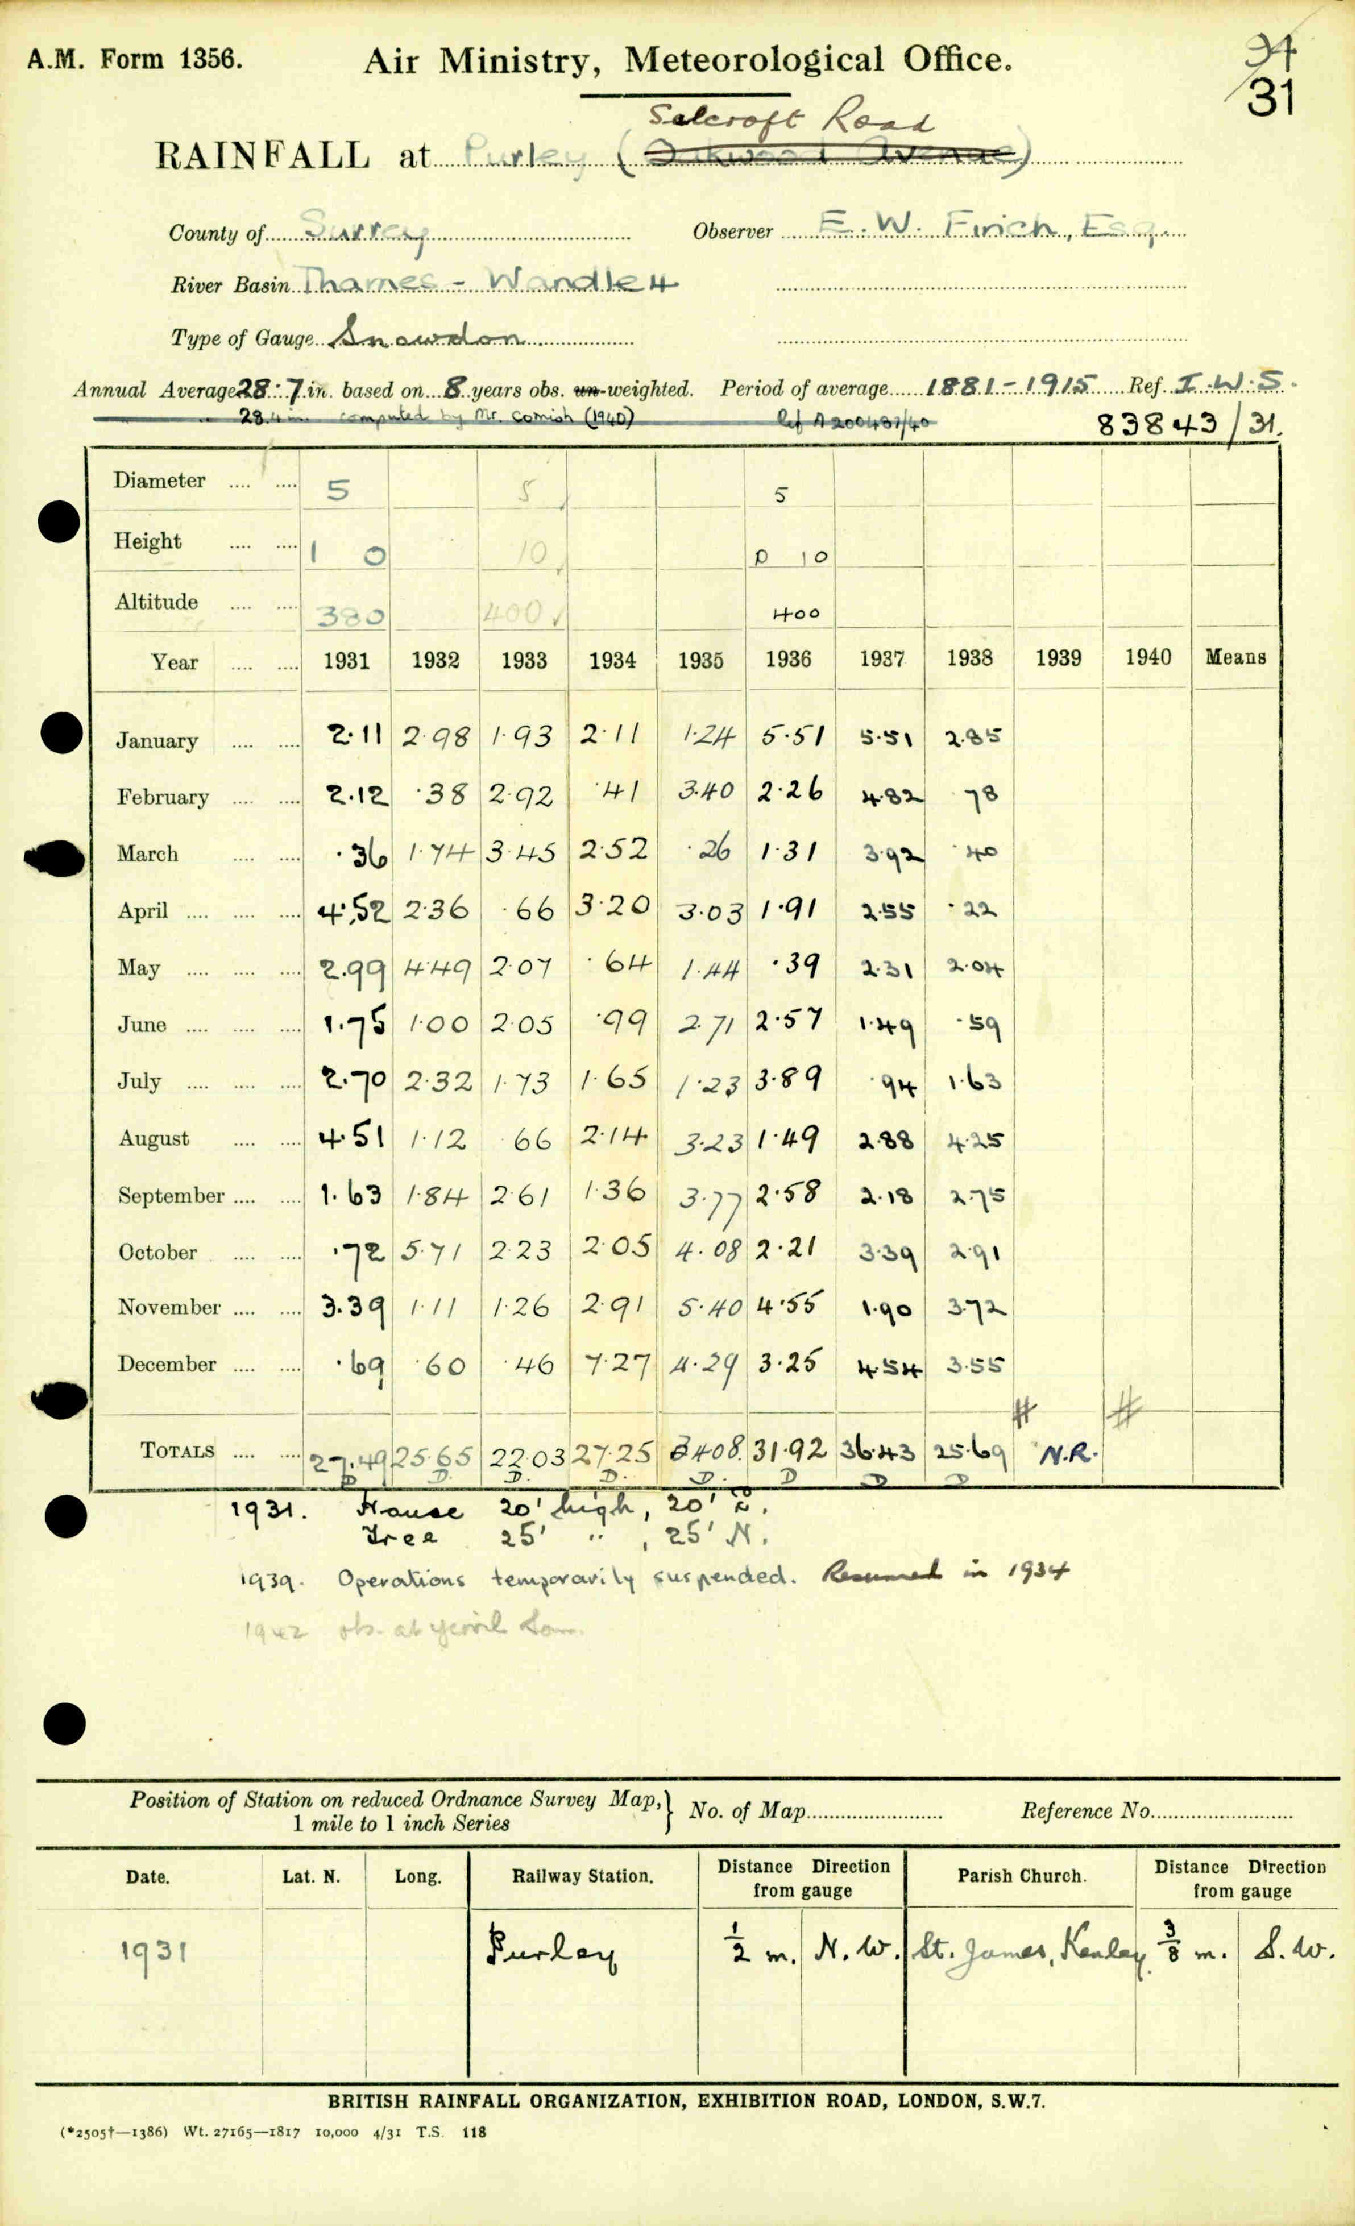 A.M. Form 1356.
Air Ministry, Meteorological Office.
94
31
Selcroft Road
RAINFALL at Purley (Oakwood Avenue)
County of Surrey Observer E. W. Finch, Esq.
River Basin Thames - Wandle 4
Type of Gauge Snowdon
Annual Average 28.7 in. based on 8 years obs. un-weighted. Period of average 1881-1915 Ref I.W.S.
28.4 in. computed by Mr. Cornish (1940) Ref A200437/40 83843/31.
Diameter .... .... 5 5 5
Height .... .... 1 0 10 0 10
Altitude .... .... 380 400 400
Year .... .... 1931 1932 1933 1934 1935 1936 1937 1938 1939 1940 Means
January .... .... 2.11 2.98 1.93 2.11 1.24 5.51 5.51 2.85
February .... .... 2.12 .38 2.92 .41 3.40 2.26 4.82 .78
March .... .... .36 1.74 3.45 2.52 .26 1.31 3.92 .40
April .... .... .... 4.52 2.36 .66 3.20 3.03 1.91 2.55 .22
May .... .... .... 2.99 4.49 2.07 .64 1.44 .39 2.31 2.04
June .... .... .... 1.75 1.00 2.05 .99 2.71 2.57 1.49 .59
July .... .... .... 2.70 2.32 1.73 1.65 1.23 3.89 .94 1.63
August .... .... 4.51 1.12 .66 2.14 3.23 1.49 2.88 4.25
September .... .... 1.63 1.84 2.61 1.36 3.77 2.58 2.18 2.75
October .... .... .72 5.71 2.23 2.05 4.08 2.21 3.39 2.91
November .... .... 3.39 1.11 1.26 2.91 5.40 4.55 1.90 3.72
December .... .... .69 .60 .46 7.27 4.29 3.25 4.54 3.55
# #
TOTALS .... .... 27.49 25.65 22.03 27.25 34.08 31.92 36.43 25.69 N.R.
D D. D. D. D. D D D
1931. House 20' high, 20'
Tree 25' " , 25' N.
1939. Operations temporarily suspended. Resumed in 1934
1942 obs. at Yeovil Som.
Position of Station on reduced Ordnance Survey Map,} No. of Map Reference No.
1 mile to 1 inch Series
Date. Lat. N. Long. Railway Station. Distance Direction from gauge Parish Church. Distance Direction from gauge
1931 Purley 1/2 m. N.W. St. James, Kenley. 3/8 m. S.W.
BRITISH RAINFALL ORGANIZATION, EXHIBITION ROAD, LONDON, S.W.7.
(*2505†—1386) Wt. 27165—1817 10,000 4/31 T.S. 118